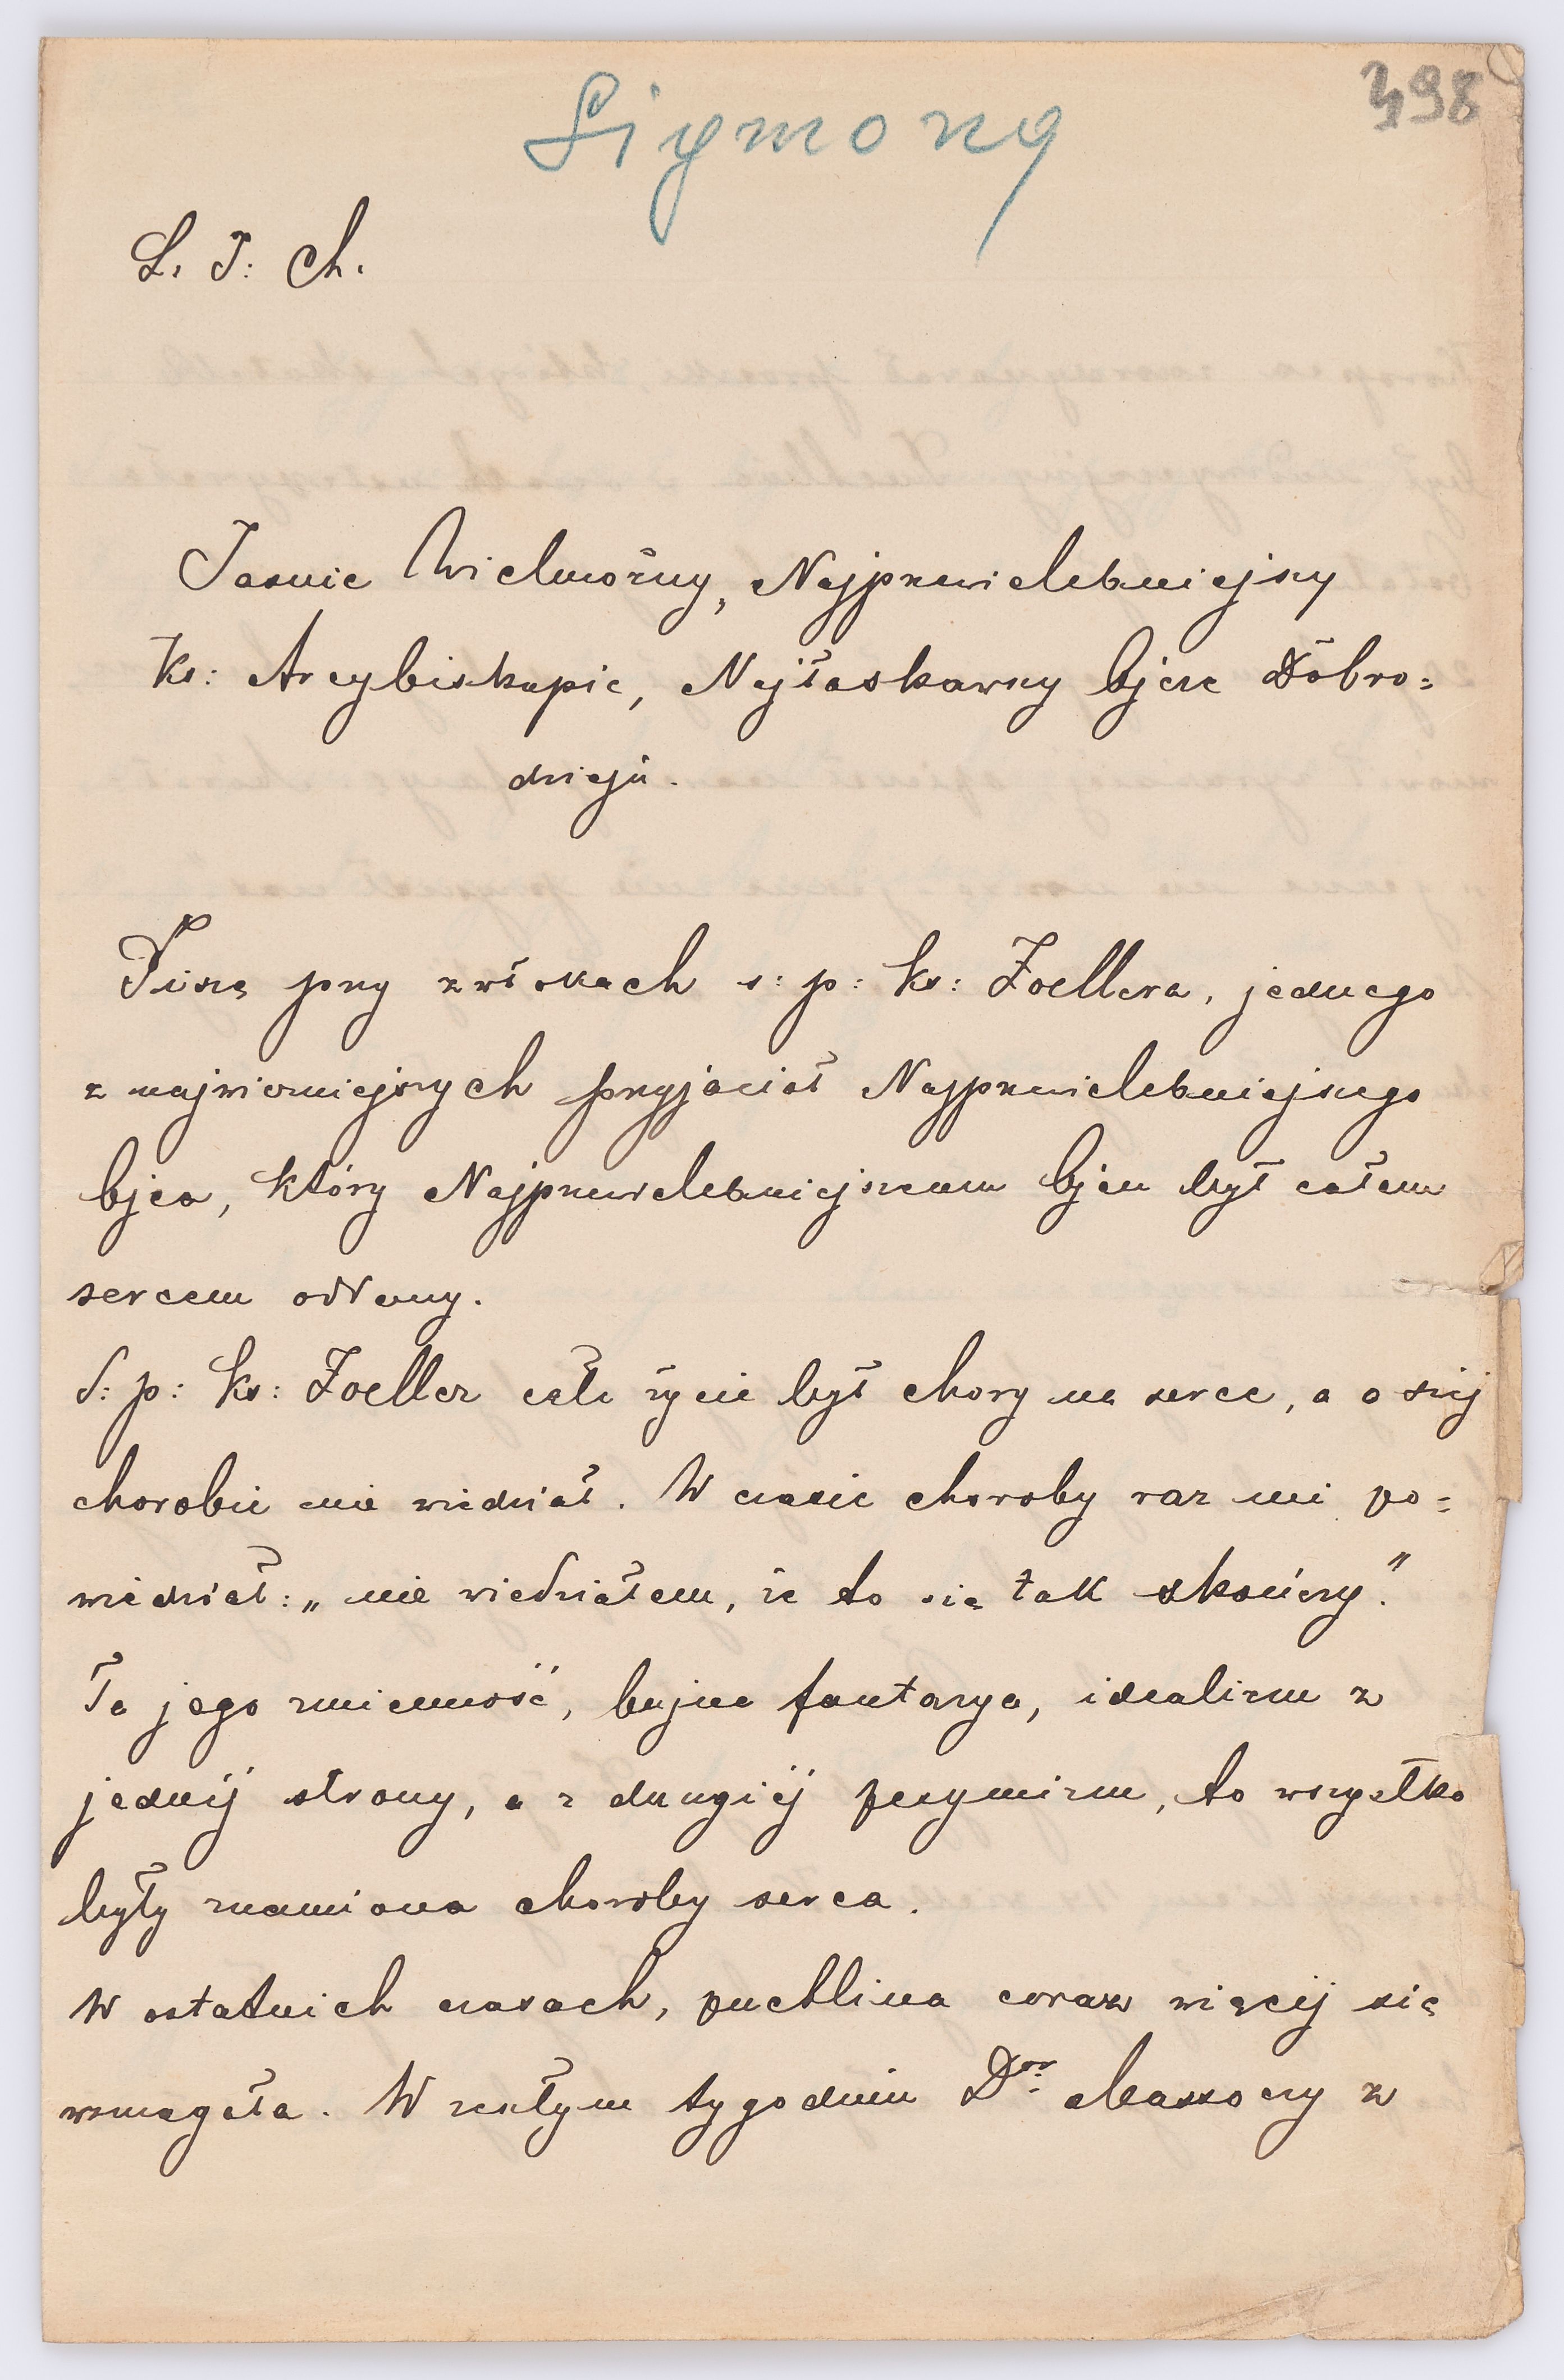 Sigmong
398
L. J: Ch.
Jasnie Wielmożny, Najprzewielebniejszy
Ks: Arcybiskupie, Najłaskawszy Ojcze Dobro=
dzieju.
Piszę przy zwłokach ś: p: ks: Zoellera, jednego
z najwierniejszych przyjaciół Najprzewielebniejszego
Ojca, który Najprzewielebniejszemu Ojcu był całem
sercem oddany.
Ś: p: ks: Zoeller całe życie był chory na serce, a o swéj
chorobie nie wiedział. W czasie choroby raz mi po=
wiedział: „nie wiedziałem, że to się tak skończy."
Ta jego zmienność, bujna fantazya, idealizm z
jednéj strony, a z drugiéj pesymizm, to wszystko
były znamiona choroby serca.
W ostatnich czasach, puchlina coraz więcéj się
wzmagała. W zeszłym tygodniu Dr. Massoczy z